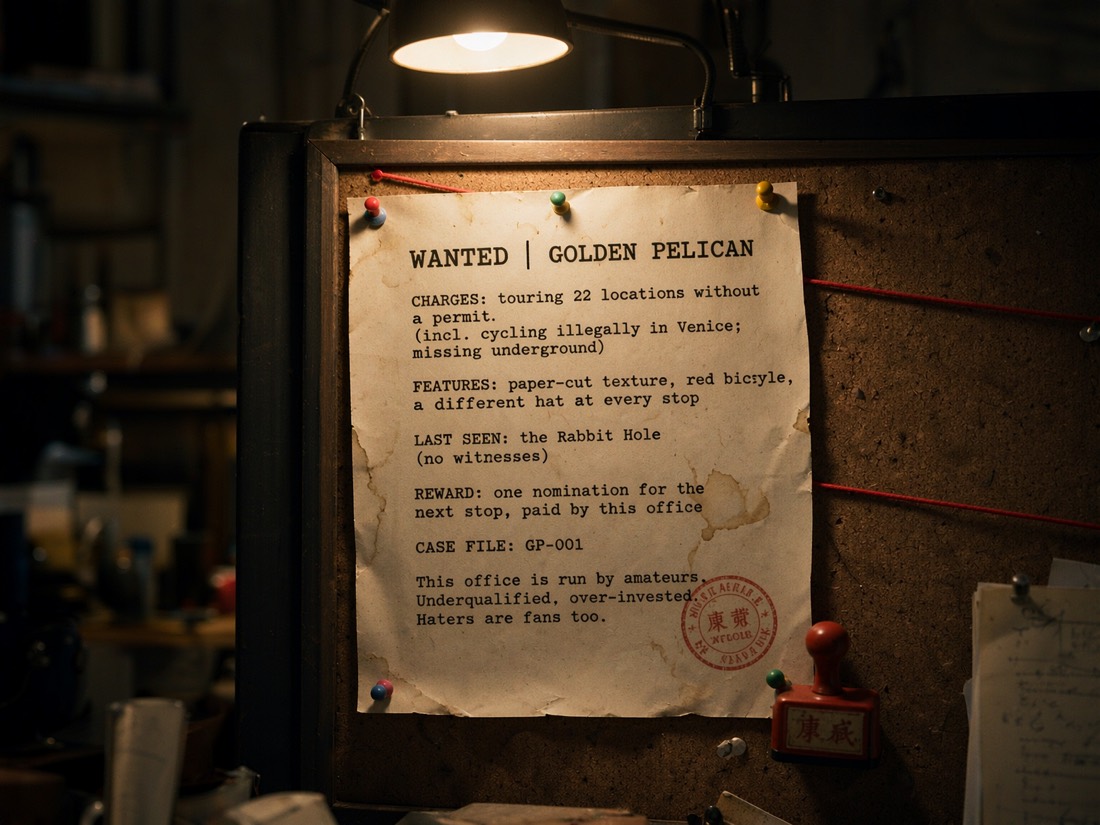 WANTED | GOLDEN PELICAN
CHARGES: touring 22 locations without
a permit.
(incl. cycling illegally in Venice;
missing underground)
FEATURES: paper-cut texture, red bicycle,
a different hat at every stop
LAST SEEN: the Rabbit Hole
(no witnesses)
REWARD: one nomination for the
next stop, paid by this office
CASE FILE: GP-001
This office is run by amateurs.
Underqualified, over-invested.
Haters are fans too.